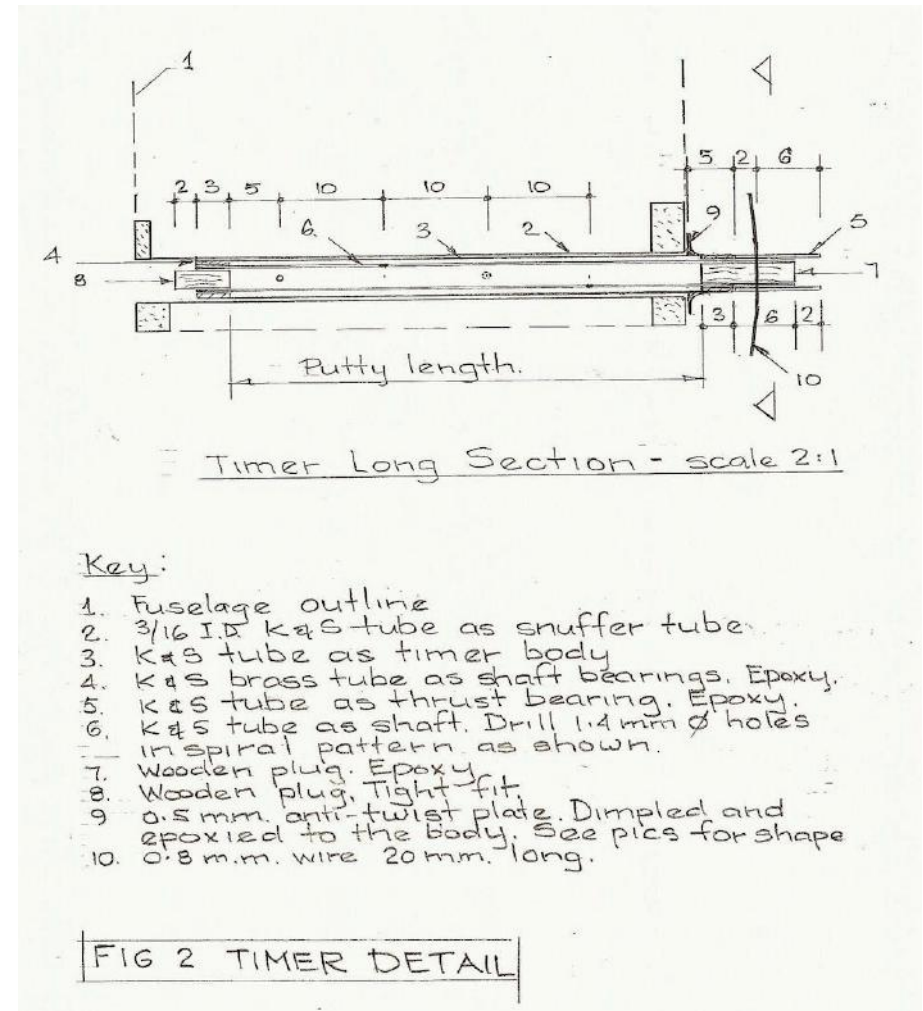 1
5 2 6
2 3 5 10 10 10
6 3 2 9 5
4
8 7
3 6 2
Putty length.
10
Timer Long Section - scale 2:1
Key:
1. Fuselage outline
2. 3/16 I.D. K&S tube as snuffer tube
3. K&S tube as timer body
4. K&S brass tube as shaft bearings. Epoxy.
5. K&S tube as thrust bearing. Epoxy.
6. K&S tube as shaft. Drill 1.4 mm Ø holes
in spiral pattern as shown.
7. Wooden plug. Epoxy
8. Wooden plug. Tight fit.
9 0.5 mm. anti-twist plate. Dimpled and
epoxied to the body. See pics for shape
10. 0.8 m.m. wire 20 mm. long.
FIG 2 TIMER DETAIL